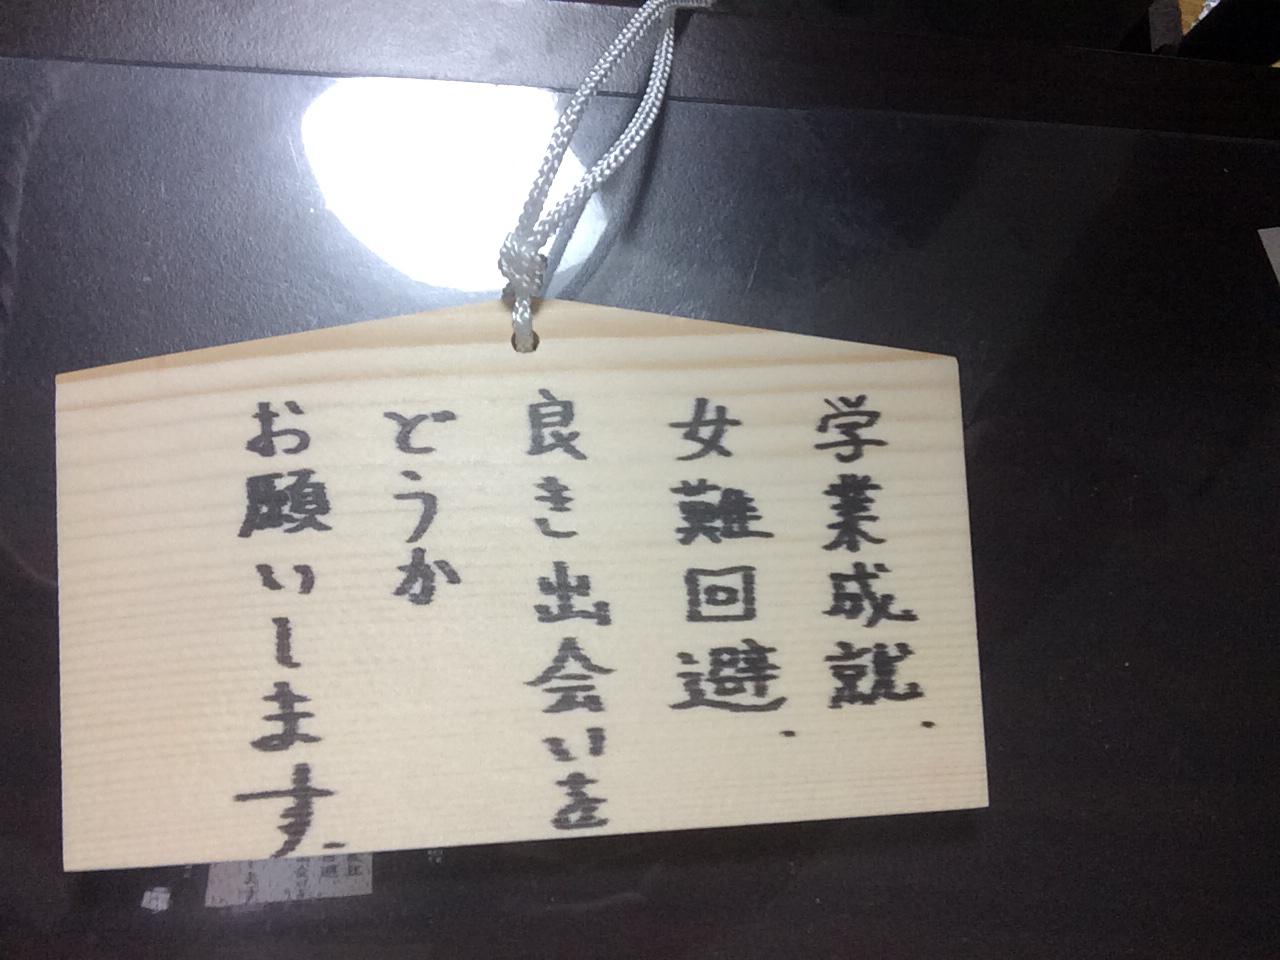 学業成就.
女難回避.
良き出会いを
どうか
お願いします.